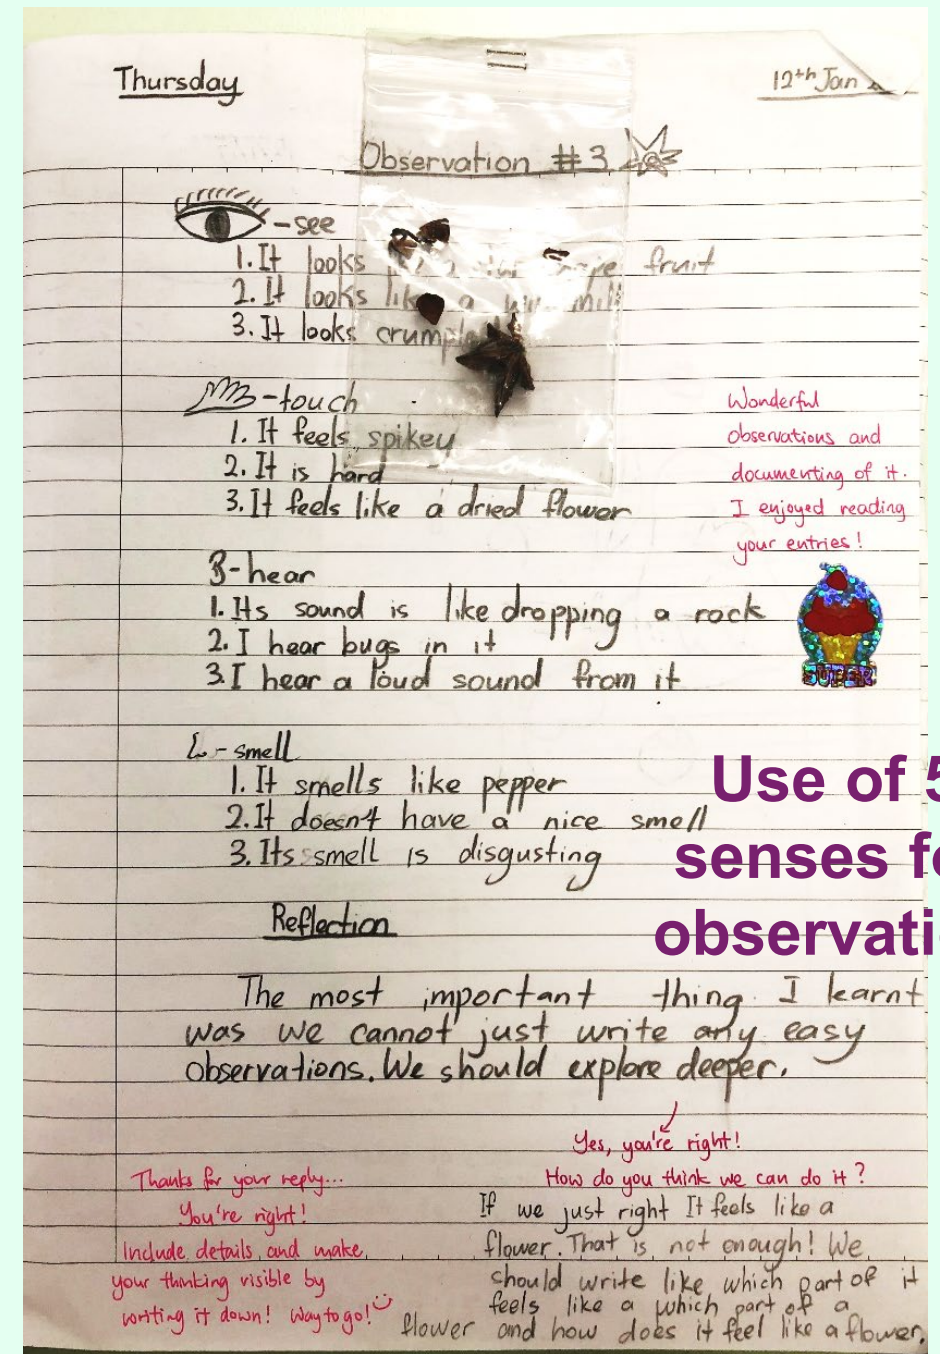 Thursday
12th Jan
Observation #3
-see
1. It looks fruit
2. It looks like a mill
3. It looks crumpled
-touch
1. It feels spikey
2. It is hard
3. It feels like a dried flower
Wonderful
observations and
documenting of it.
I enjoyed reading
your entries!
SUPER
-hear
1. Its sound is like dropping a rock
2. I hear bugs in it
3. I hear a loud sound from it
-smell
1. It smells like pepper
2. It doesn't have a nice smell
3. Its smell is disgusting
Use of 5
senses fo
observati
Reflection
The most important thing I learnt
was we cannot just write any easy
observations. We should explore deeper.
Yes, you're right!
How do you think we can do it?
If we just right It feels like a
flower. That is not enough! We
should write like which part of it
feels like a which part of a
flower and how does it feel like a flower.
Thanks for your reply...
You're right!
Include details and make
your thinking visible by
writing it down! Way to go!